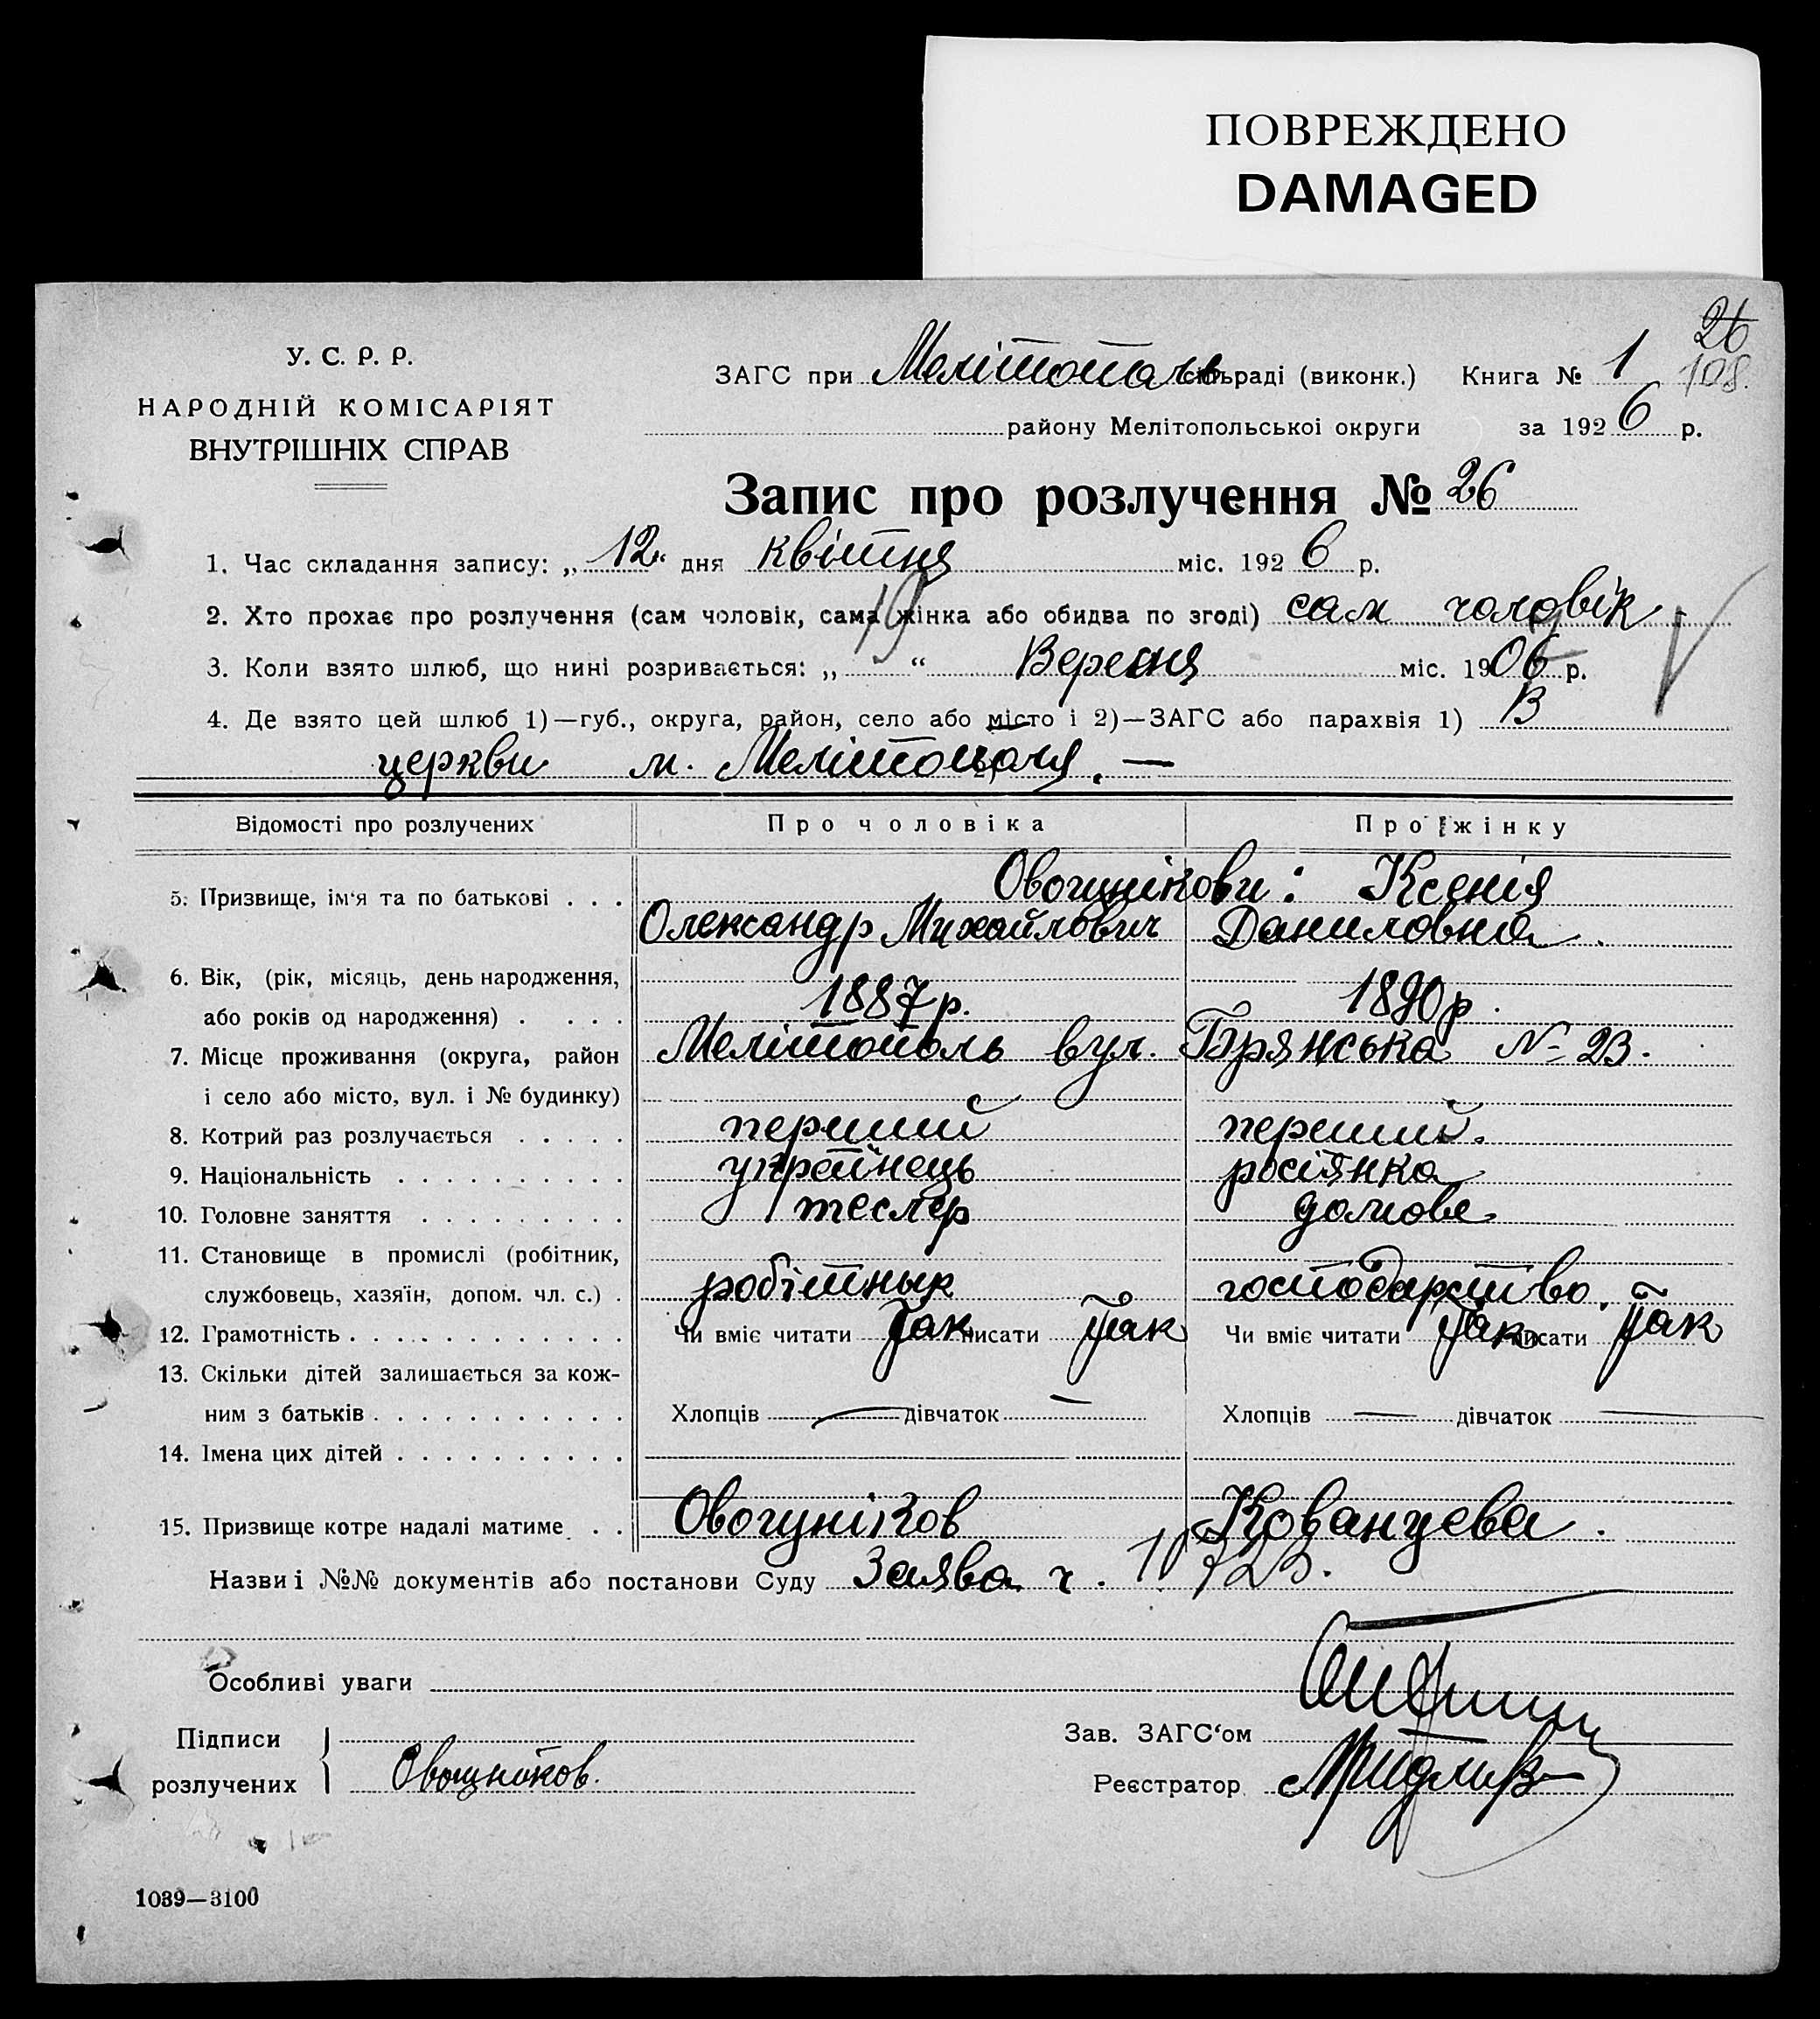 ПОВРЕЖДЕНО
DAMAGED
26
108.
У. С. Р. Р.
НАРОДНІЙ КОМІСАРІЯТ
ВНУТРІШНІХ СПРАВ
ЗАГС при Мелітополь сільраді (виконк.) Книга № 1
району Мелітопольської округи за 1926 р.
Запис про розлучення № 26
1. Час складання запису: „12“ дня квітня міс. 1926 р.
2. Хто прохає про розлучення (сам чоловік, сама жінка або обидва по згоді) сам чоловік
3. Коли взято шлюб, що нині розривається: „19“ Вересня міс. 1906 р.
4. Де взято цей шлюб 1)—губ., округа, район, село або місто і 2)—ЗАГС або парахвія 1) В
церкви м. Мелітополя. —
Відомості про розлучених Про чоловіка Про жінку
5. Призвище, ім‘я та по батькові . . . Овощнікови: Ксенія
Олександр Михайлович Даниловна.
6. Вік, (рік, місяць, день народження,
або років од народження) . . . . 1887 р. 1890 р.
7. Місце проживання (округа, район Мелітополь вул. Брянська № 23.
і село або місто, вул. і № будинку)
8. Котрий раз розлучається . . . . . перший перший.
9. Національність . . . . . . . . . . українець росіянка
10. Головне заняття . . . . . . . . . тесляр домове
11. Становище в промислі (робітник,
службовець, хазяїн, допом. чл. с.) . робітнык господарство.
12. Грамотність . . . . . . . . . . . . Чи вміє читати Так писати Так Чи вміє читати Так писати Так
13. Скільки дітей залишається за кож-
ним з батьків . . . . . . . . . . . Хлопців — дівчаток — Хлопців — дівчаток —
14. Імена цих дітей . . . . . . . . . .
15. Призвище котре надалі матиме . . Овощніков Кованцева.
Назви і №№ документів або постанови Суду Заява ч.
Особливі уваги
Підписи
розлучених Овощников.
Зав. ЗАГС‘ом
Реєстратор
1039—3100